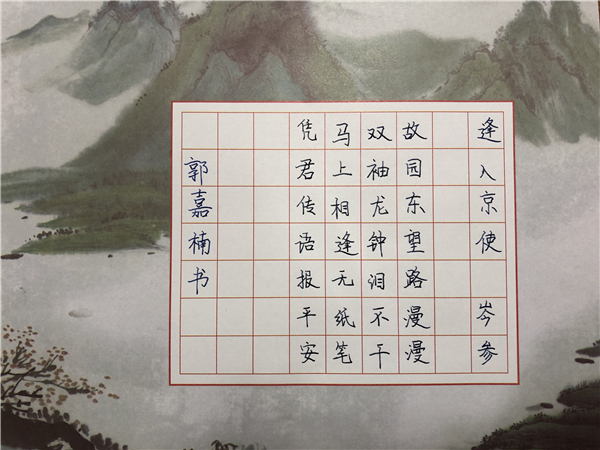 逢入京使 岑参
故园东望路漫漫
双袖龙钟泪不干
马上相逢无纸笔
凭君传语报平安
郭嘉楠书